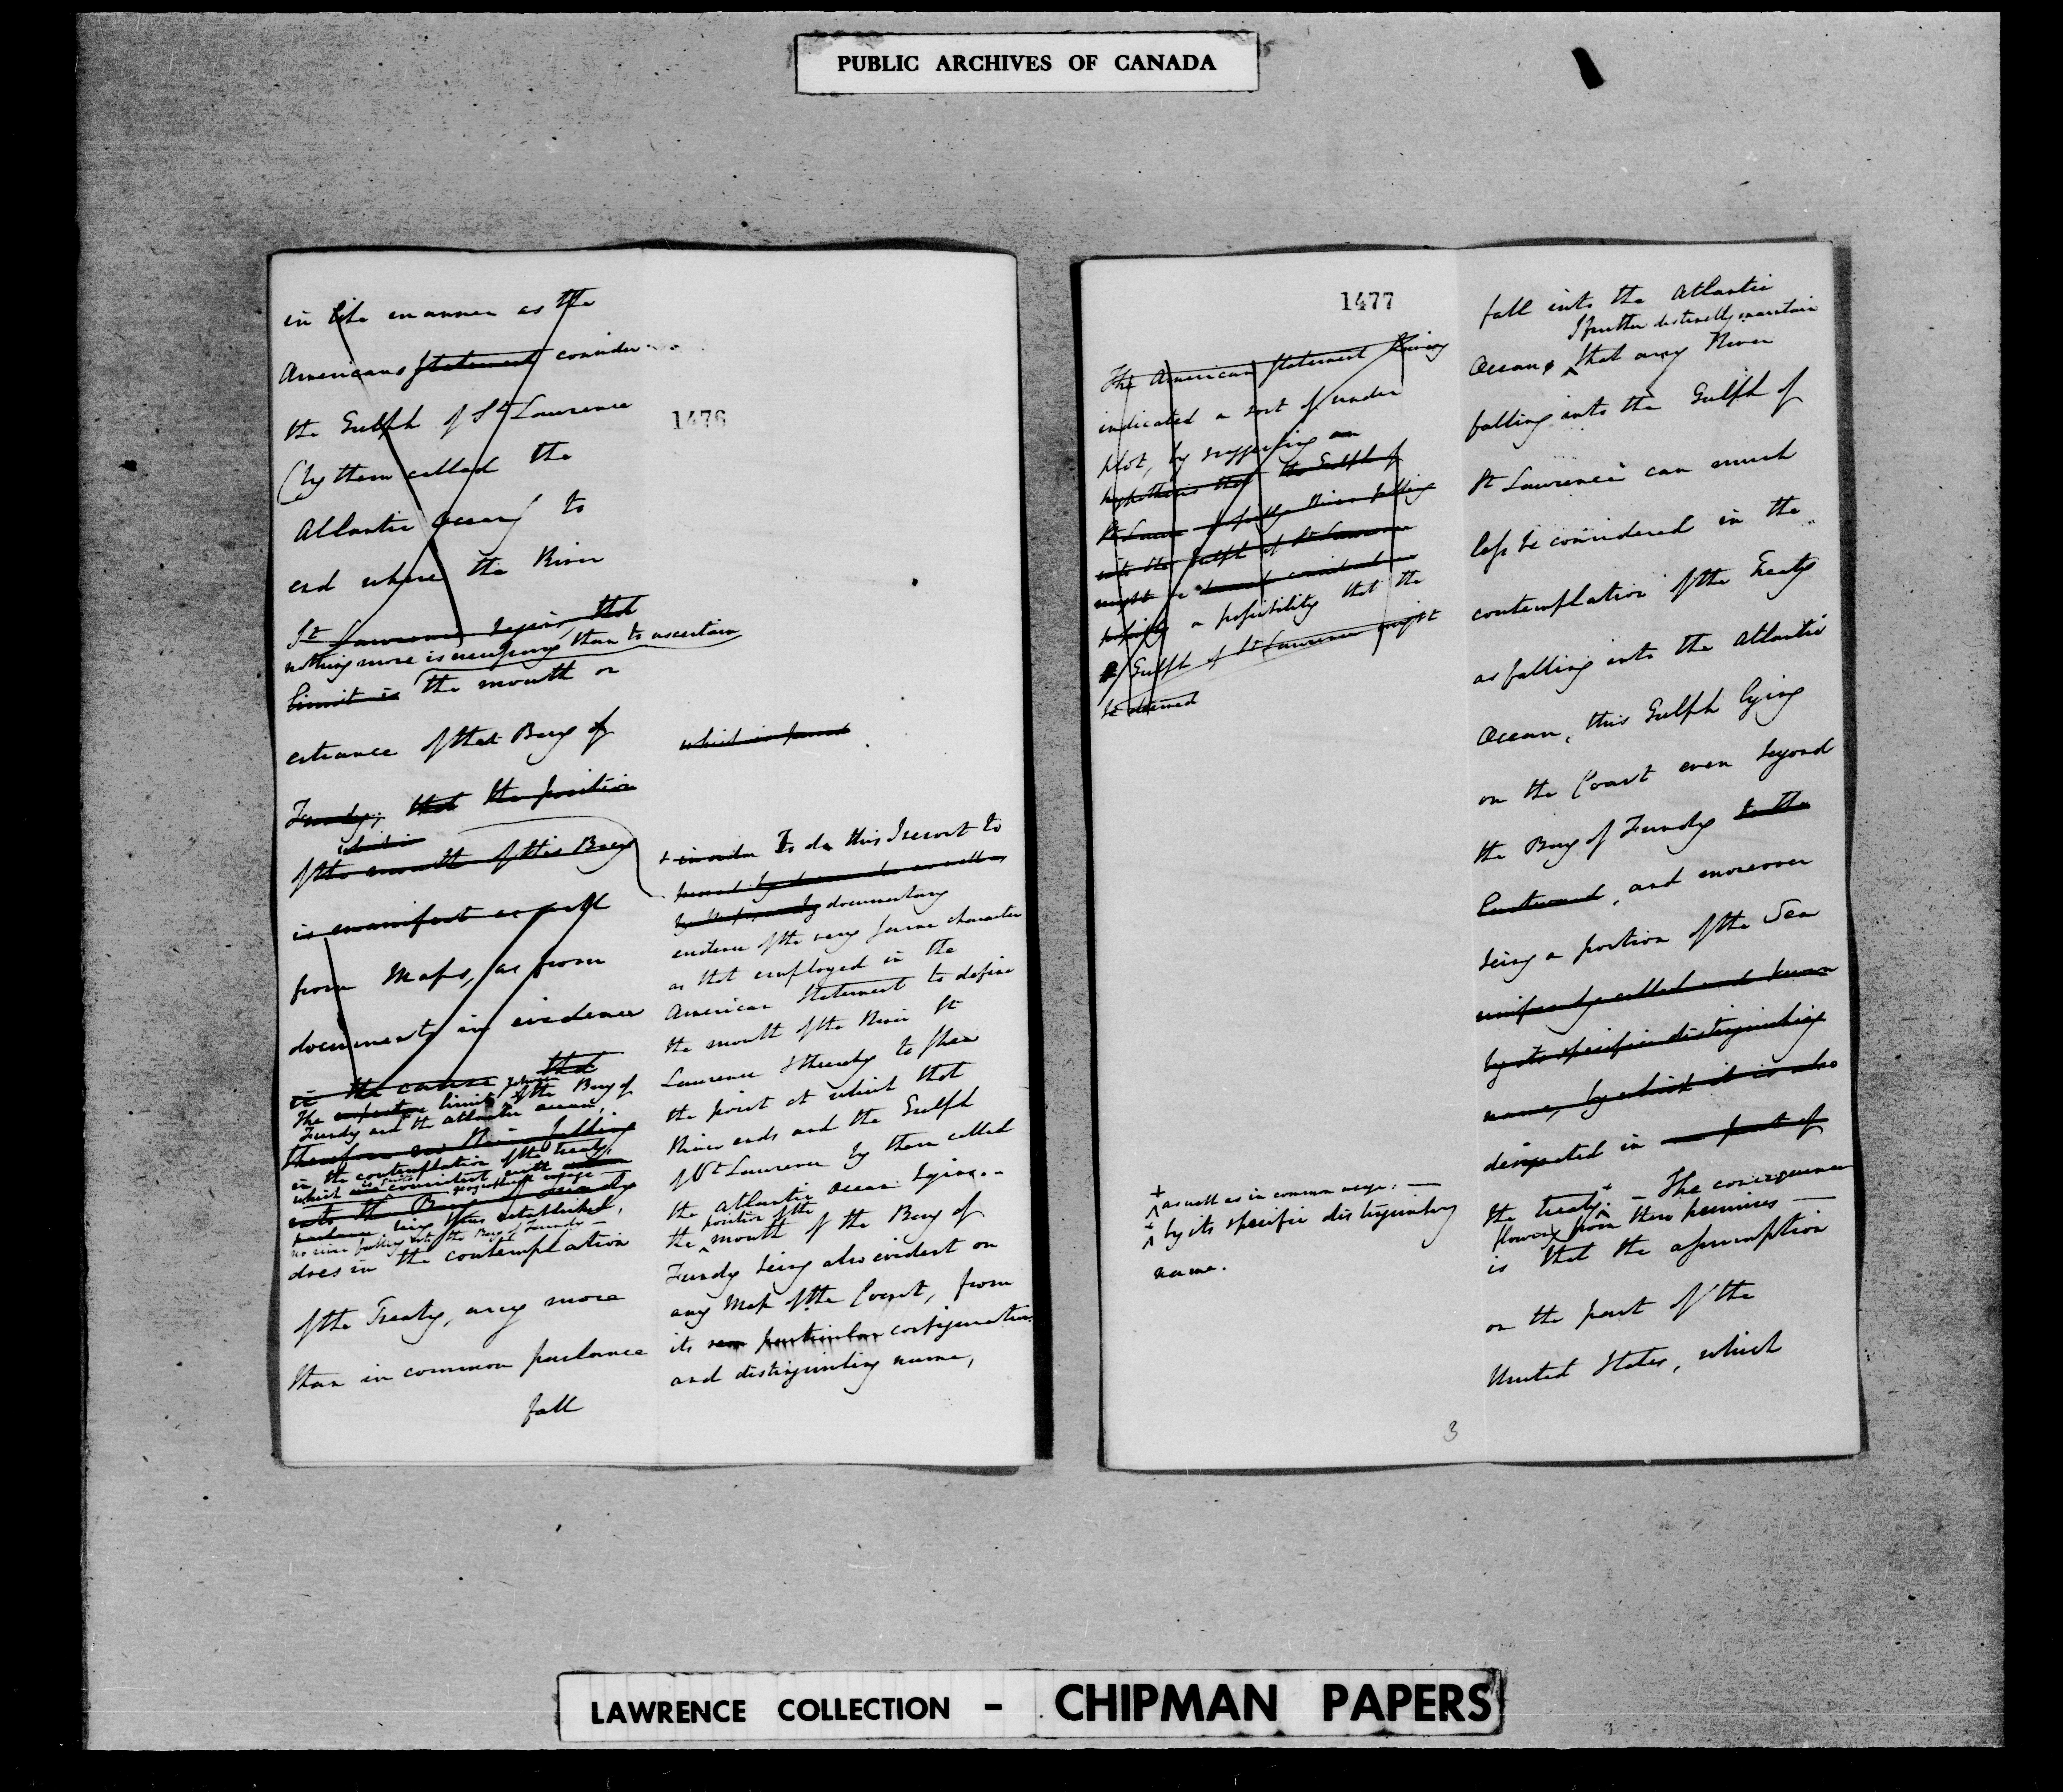 PUBLIC ARCHIVES OF CANADA
in like manner as the
Americans Statement consider
the Gulph of St Lawrence
(by them called the
Atlantic Ocean) to
end where the River
St Lawrence begins that
nothing more is necessary than to ascertain
limit is the mouth or
entrance of that Bay of
Fundy; that the position
which is
of the mouth of this Bay
is manifest as well
from Maps, as from
documents in evidence
in the cause that
The limit of the Bay of
Fundy and the Atlantic Ocean,
therefore no River falling
in the contemplation of the treaty,
which is consistent with
geographical usage
into the Bay of Fundy
being thus established,
no river falling into the Bay of Fundy
does in the contemplation
of the Treaty, any more
than in common parlance
fall
1476
which is found
+ in order To do this I resort to
proved by as well as
by documentary
evidence of the very same character
as that employed in the
American Statement to define
the mouth of the River St
Lawrence & thereby to shew
the point at which that
River ends and the Gulph
of St Lawrence by them called
the Atlantic Ocean begins.-
position of the
the mouth of the Bay of
Fundy being also evident on
any Map of the Coast, from
its particular configuration
and distinguishing name,
1477
The American Statement having
indicated a sort of under
plot, by suggesting an
hypothesis that the Gulph of
St Lawr River falling
into the Gulph of St Lawrence
might be considered
possibly a possibility that the
Gulph of St Lawrence might
be deemed
+ as well as in common usage. —
* by its specific distinguishing
name.
3
fall into the Atlantic
I further distinctly maintain
Ocean, that any River
falling into the Gulph of
St Lawrence can much
less be considered in the
contemplation of the Treaty
as falling into the Atlantic
Ocean, this Gulph lying
on the Coast even beyond
the Bay of Fundy to the
Eastward, and moreover
being a portion of the Sea
uniformly called and known
by its specific distinguishing
name, by which it is also
designated in part of
the treaty. — The consequence
flowing from these premises —
is that the assumption
on the part of the
United States, which
LAWRENCE COLLECTION - CHIPMAN PAPERS